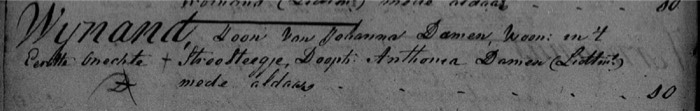 mode aldaar 80
Wynand, Zoon van Johanna Damen, woon: in 't
Eerste onechte + Stroosteegje, Doopt: Anthonia Damen (Lidtm:)
mode aldaar 80